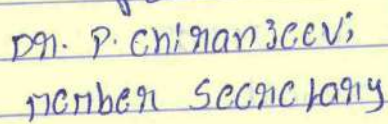 Dr. P. Chiranjeevi
Member Secretary